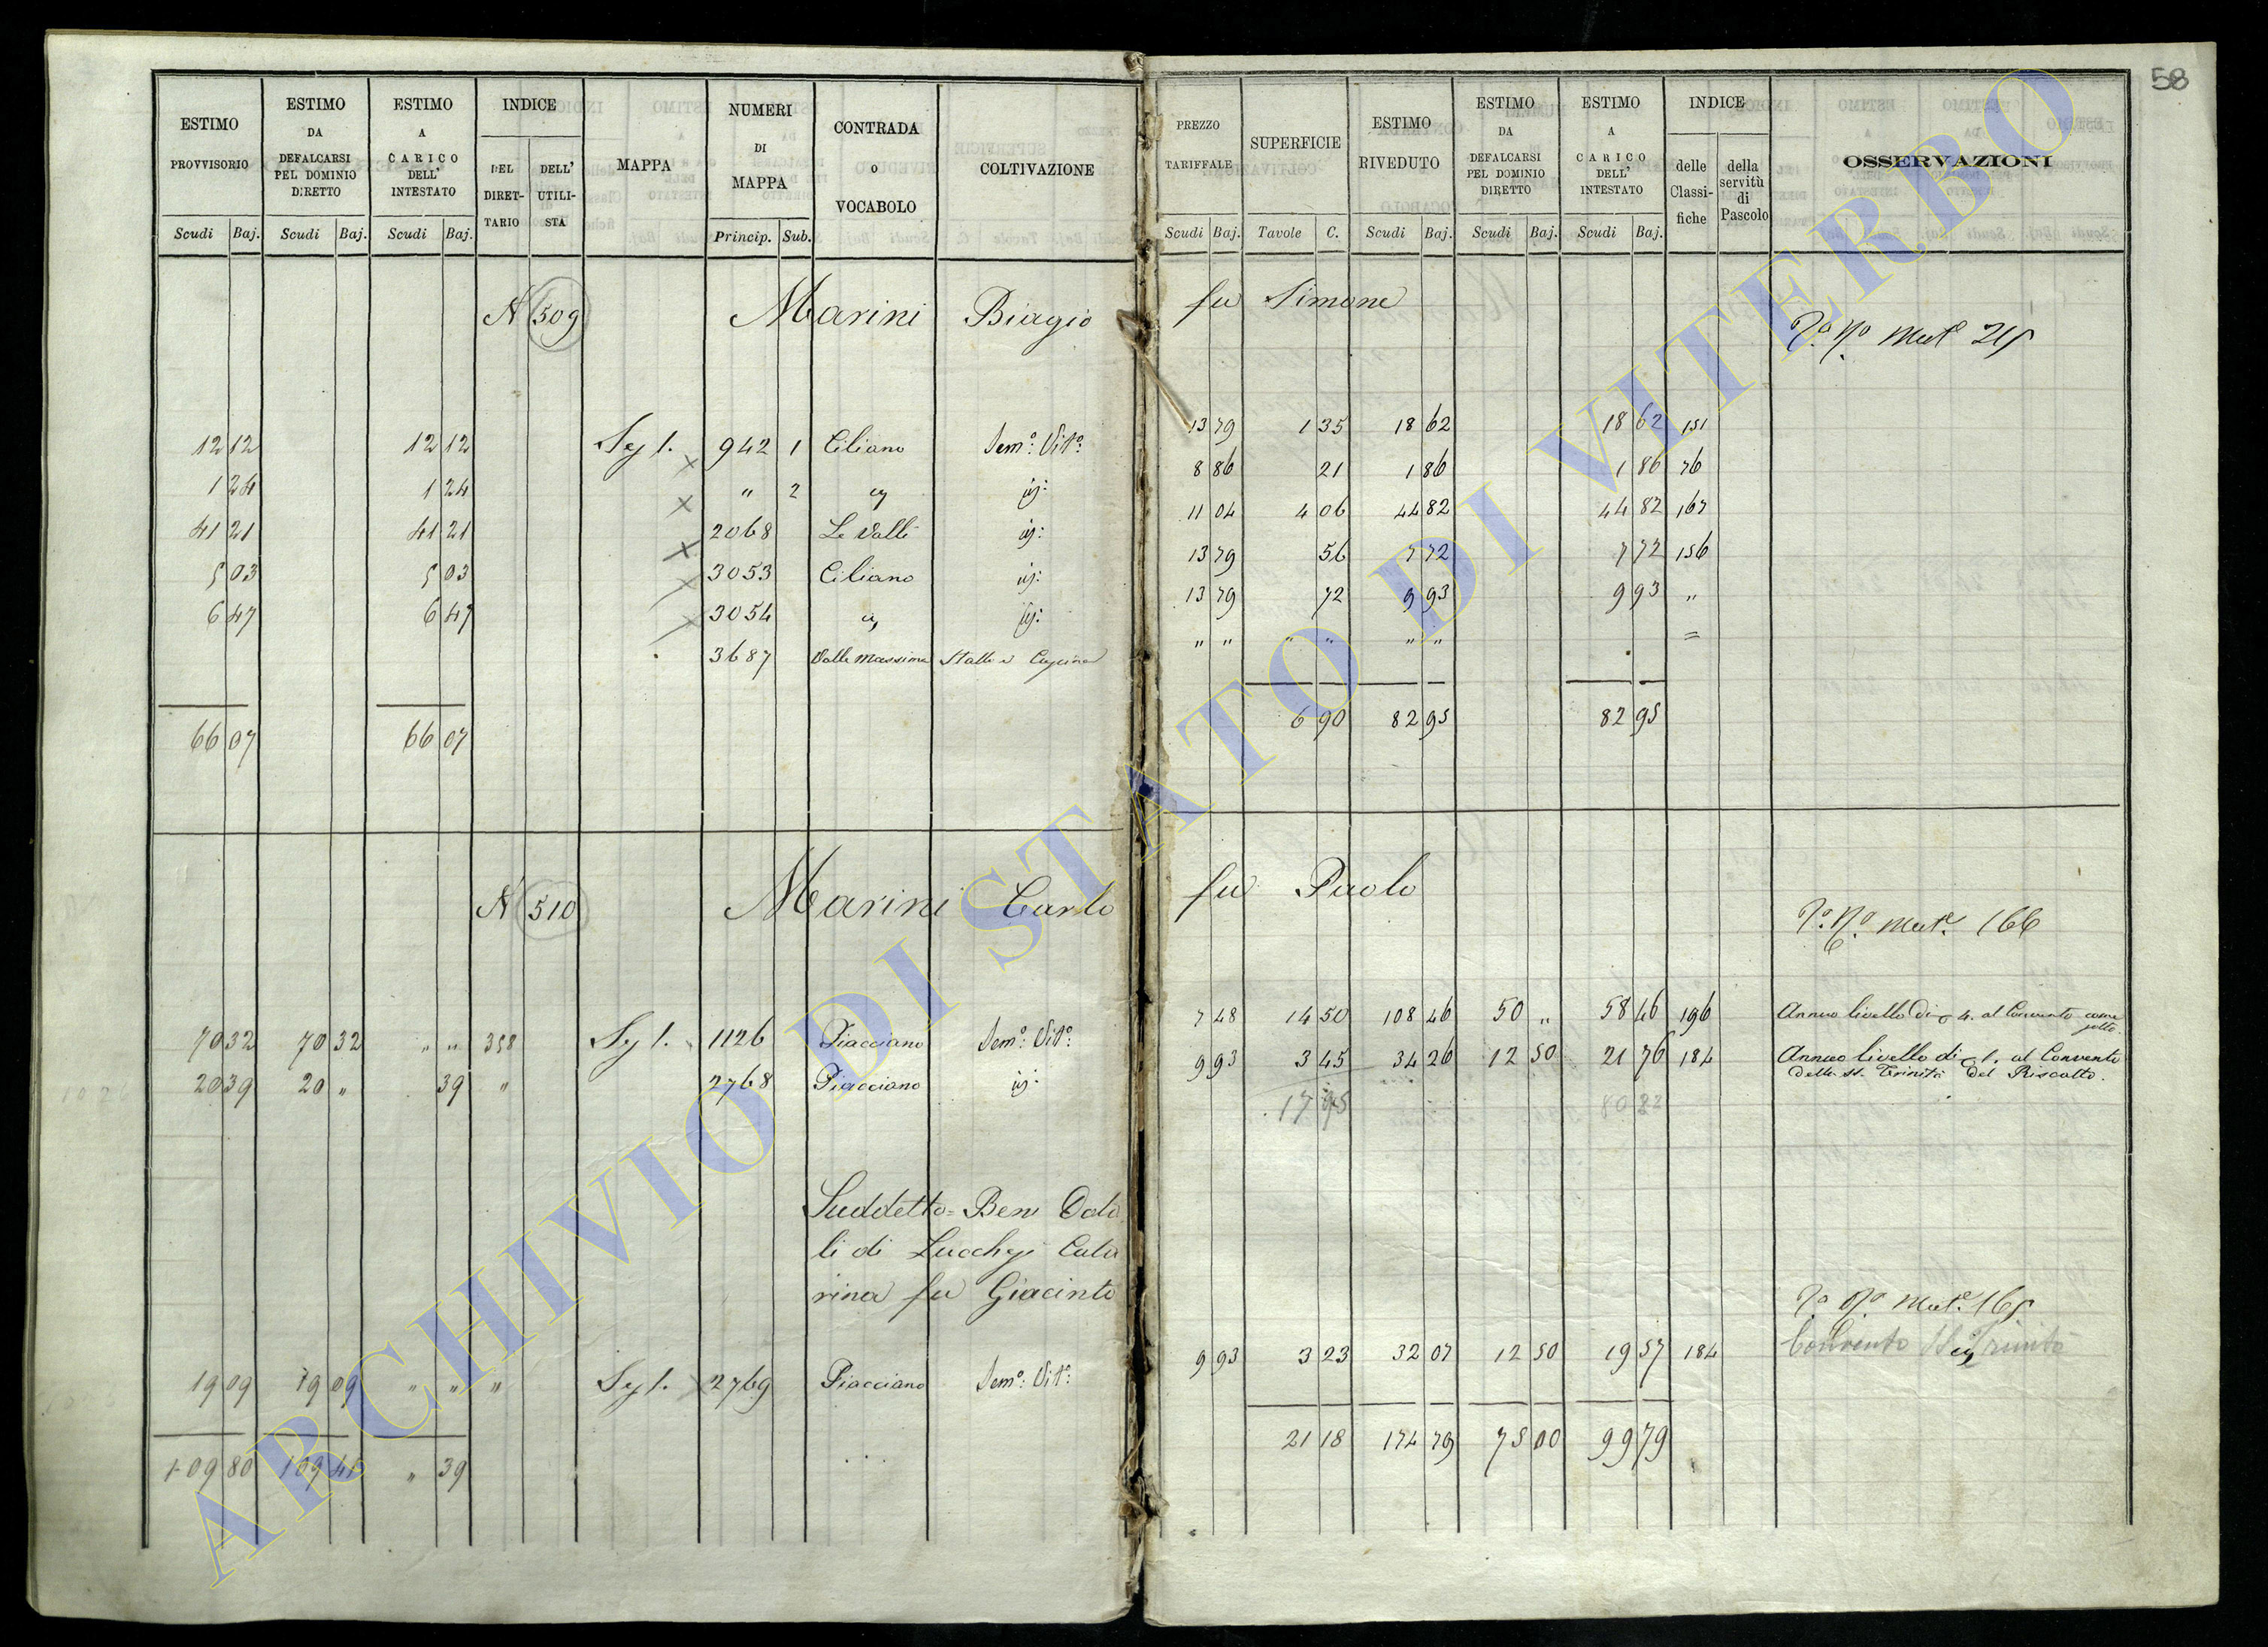 58
ESTIMO PROVVISORIO | ESTIMO DA DEFALCARSI PEL DOMINIO DIRETTO | ESTIMO A CARICO DELL' INTESTATO | INDICE DEL DIRETTARIO | DELL' UTILISTA | MAPPA | NUMERI DI MAPPA | CONTRADA o VOCABOLO | COLTIVAZIONE | PREZZO TARIFFALE | SUPERFICIE | ESTIMO RIVEDUTO | ESTIMO DA DEFALCARSI PEL DOMINIO DIRETTO | ESTIMO A CARICO DELL' INTESTATO | INDICE delle Classifiche | della servitù di Pascolo | OSSERVAZIONI
Scudi Baj. | Scudi Baj. | Scudi Baj. | Princip. Sub. | Scudi Baj. | Tavole C. | Scudi Baj. | Scudi Baj. | Scudi Baj.
N 509 Marini Biagio fu Simone
Va No Mate 215
12 12 | 12 12 | Sez 1. | 942 1 | Ciliano | Semo: Vito: | 13 79 | 1 35 | 18 62 | 18 62 | 151
1 24 | 1 24 | " 2 | 8 86 | 21 | 1 86 | 1 86 | 76
41 21 | 41 21 | 2068 | Le Valli | 11 04 | 4 06 | 44 82 | 44 82 | 167
5 03 | 5 03 | 3053 | Ciliano | 13 79 | 56 | 7 72 | 7 72 | 156
6 47 | 6 47 | 3054 | 13 79 | 72 | 9 93 | 9 93 | "
3687 | Valle Massima | Stalla e Cucina | " " | " " | " " | =
66 07 | 66 07 | 6 90 | 82 95 | 82 95
N 510 Marini Carlo fu Paolo
Va. No. Mate. 166
70 32 | 70 32 | " " | 358 | Sez 1. | 1126 | Piacciano | Semo: Vito: | 7 48 | 14 50 | 108 46 | 50 " | 58 46 | 196 | Annuo livello di 4. al Convento come sotto.
20 39 | 20 " | 39 | " | 2768 | Piacciano | 9 93 | 3 45 | 34 26 | 12 50 | 21 76 | 184 | Annuo livello di 1. al Convento
della SS. Trinità del Riscatto.
17 95
Suddetto = Beni Dota
li di Lucchej Cate
rina fu Giacinto
Va No. Mate. 165
Convento SS Trinità
19 09 | 19 09 | " " | " | Sez 1. | 2769 | Piacciano | Semo: Vito: | 9 93 | 3 23 | 32 07 | 12 50 | 19 57 | 184
109 80 | 109 41 | " 39 | 21 18 | 174 79 | 75 00 | 99 79
ARCHIVIO DI STATO DI VITERBO